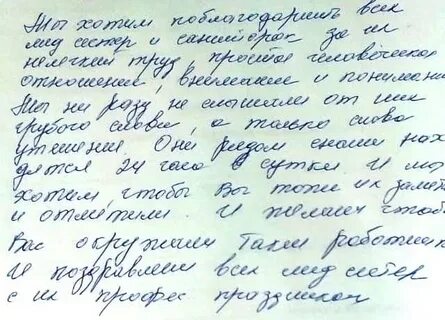 Мы хотим поблагодарить всех
мед сестер и санитарок за их
нелегкий труд, простое человеческое
отношение, внимание и понимани
Мы ни разу не слышали от них
грубого слова, а только слова
утешения. Они рядом с нами нах
дятся 24 часа в сутки и мы
хотим, чтобы Вы тоже их замет
и отметили. И желаем чтоб
Вас окружали такие работник
И поздравляем всех мед сестер
с их профес праздником